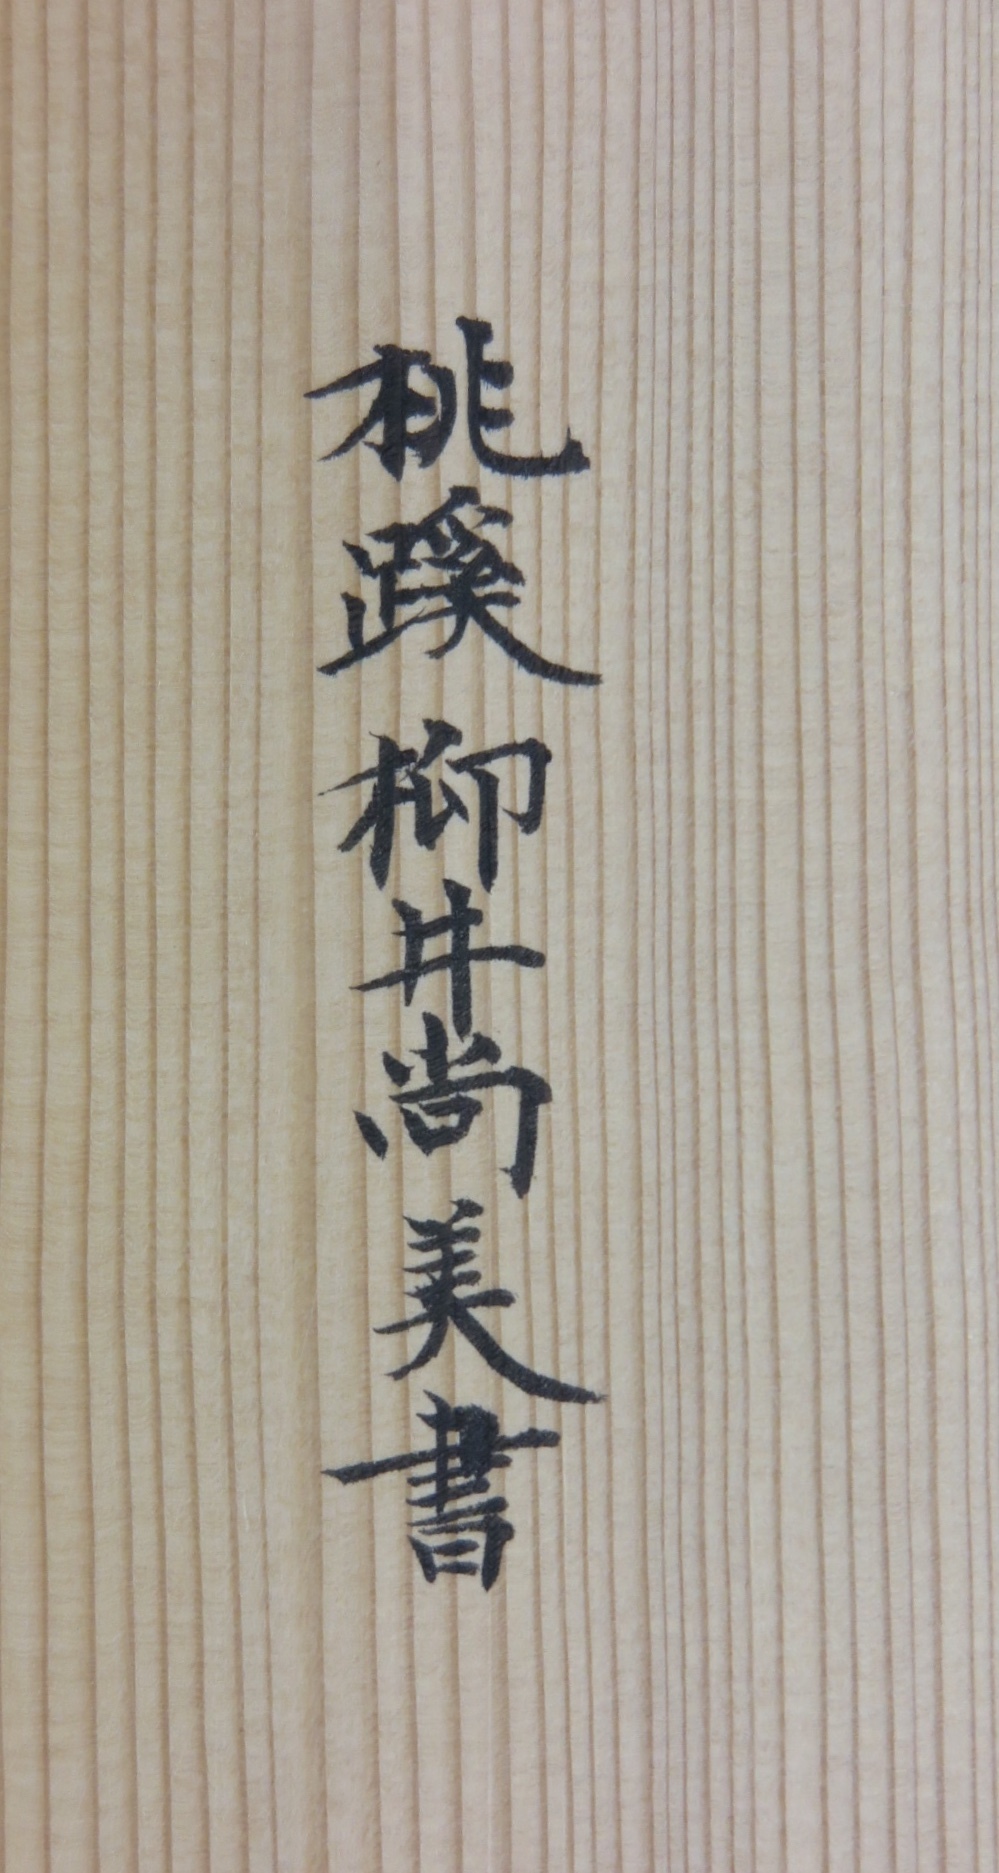 桃蹊 柳井尚美書